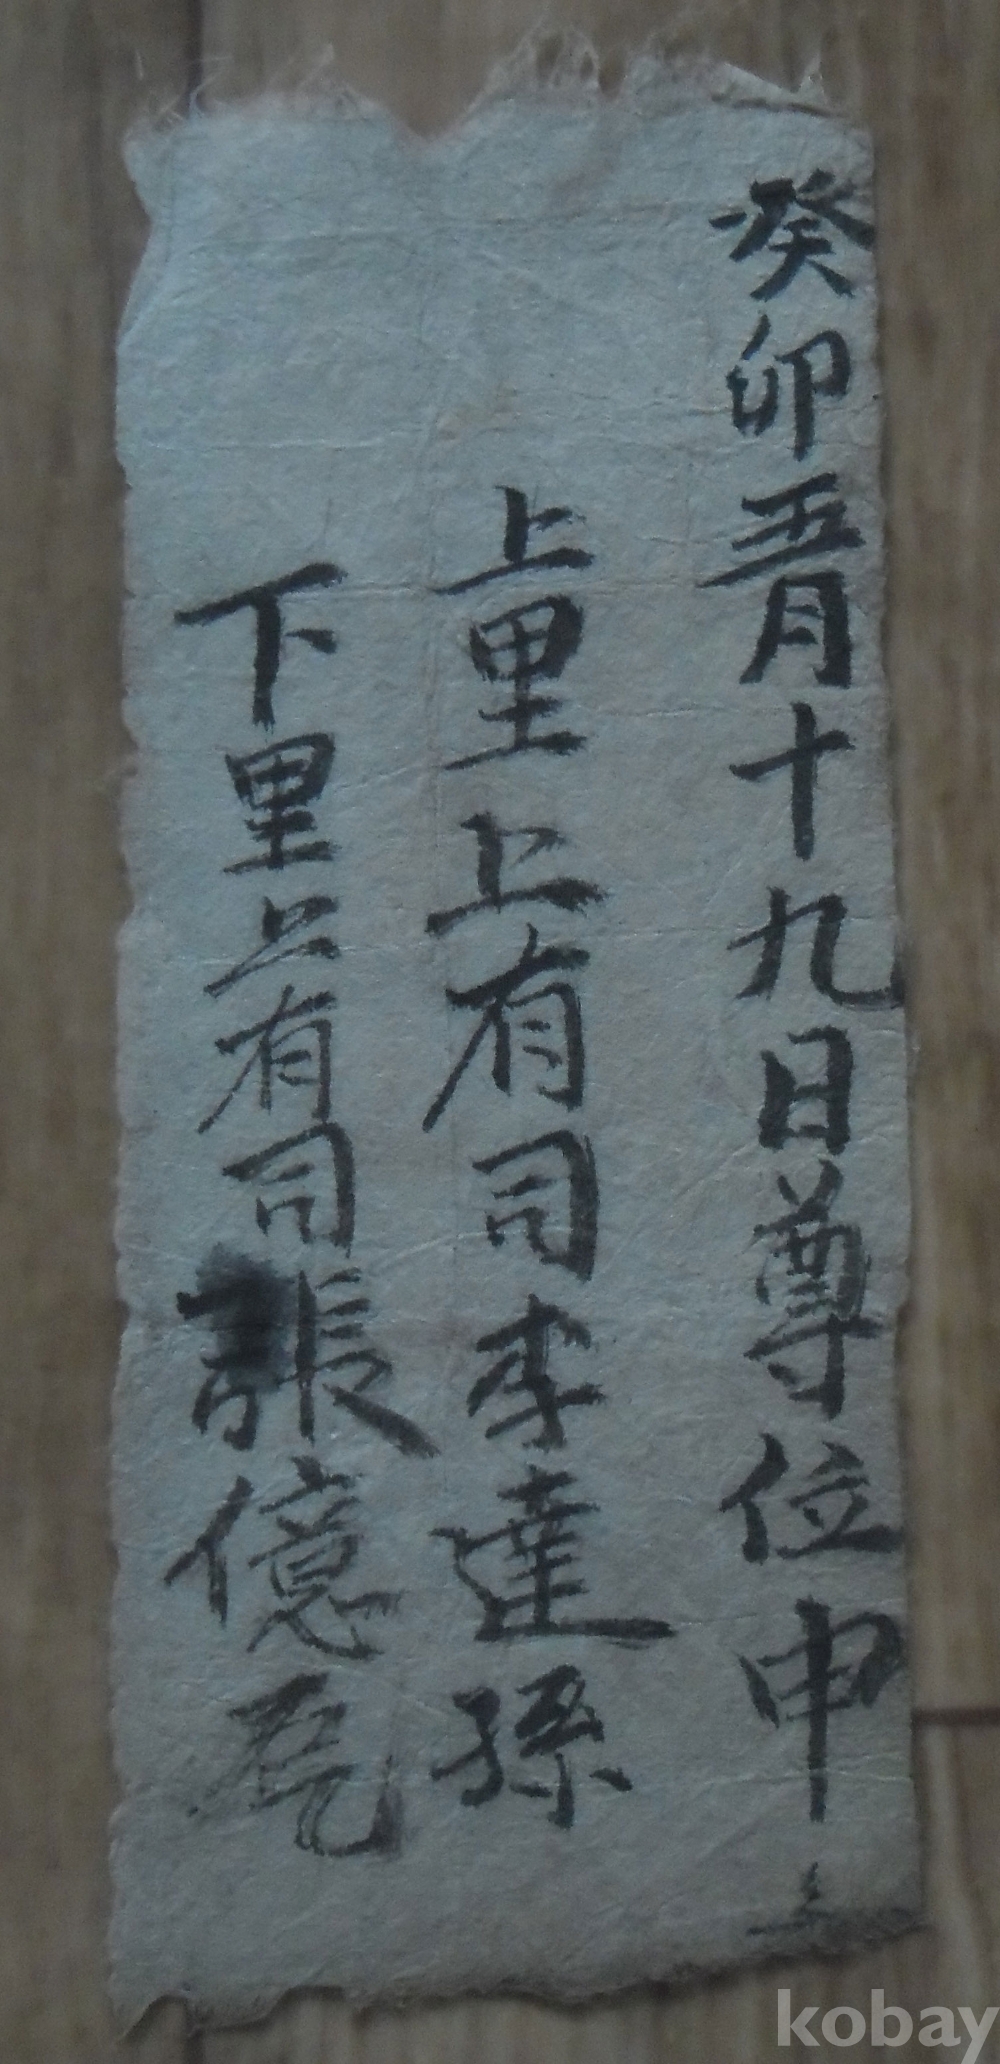 癸卯五月十九日尊位申
上里上有司李達孫
下里上有司張億
kobay